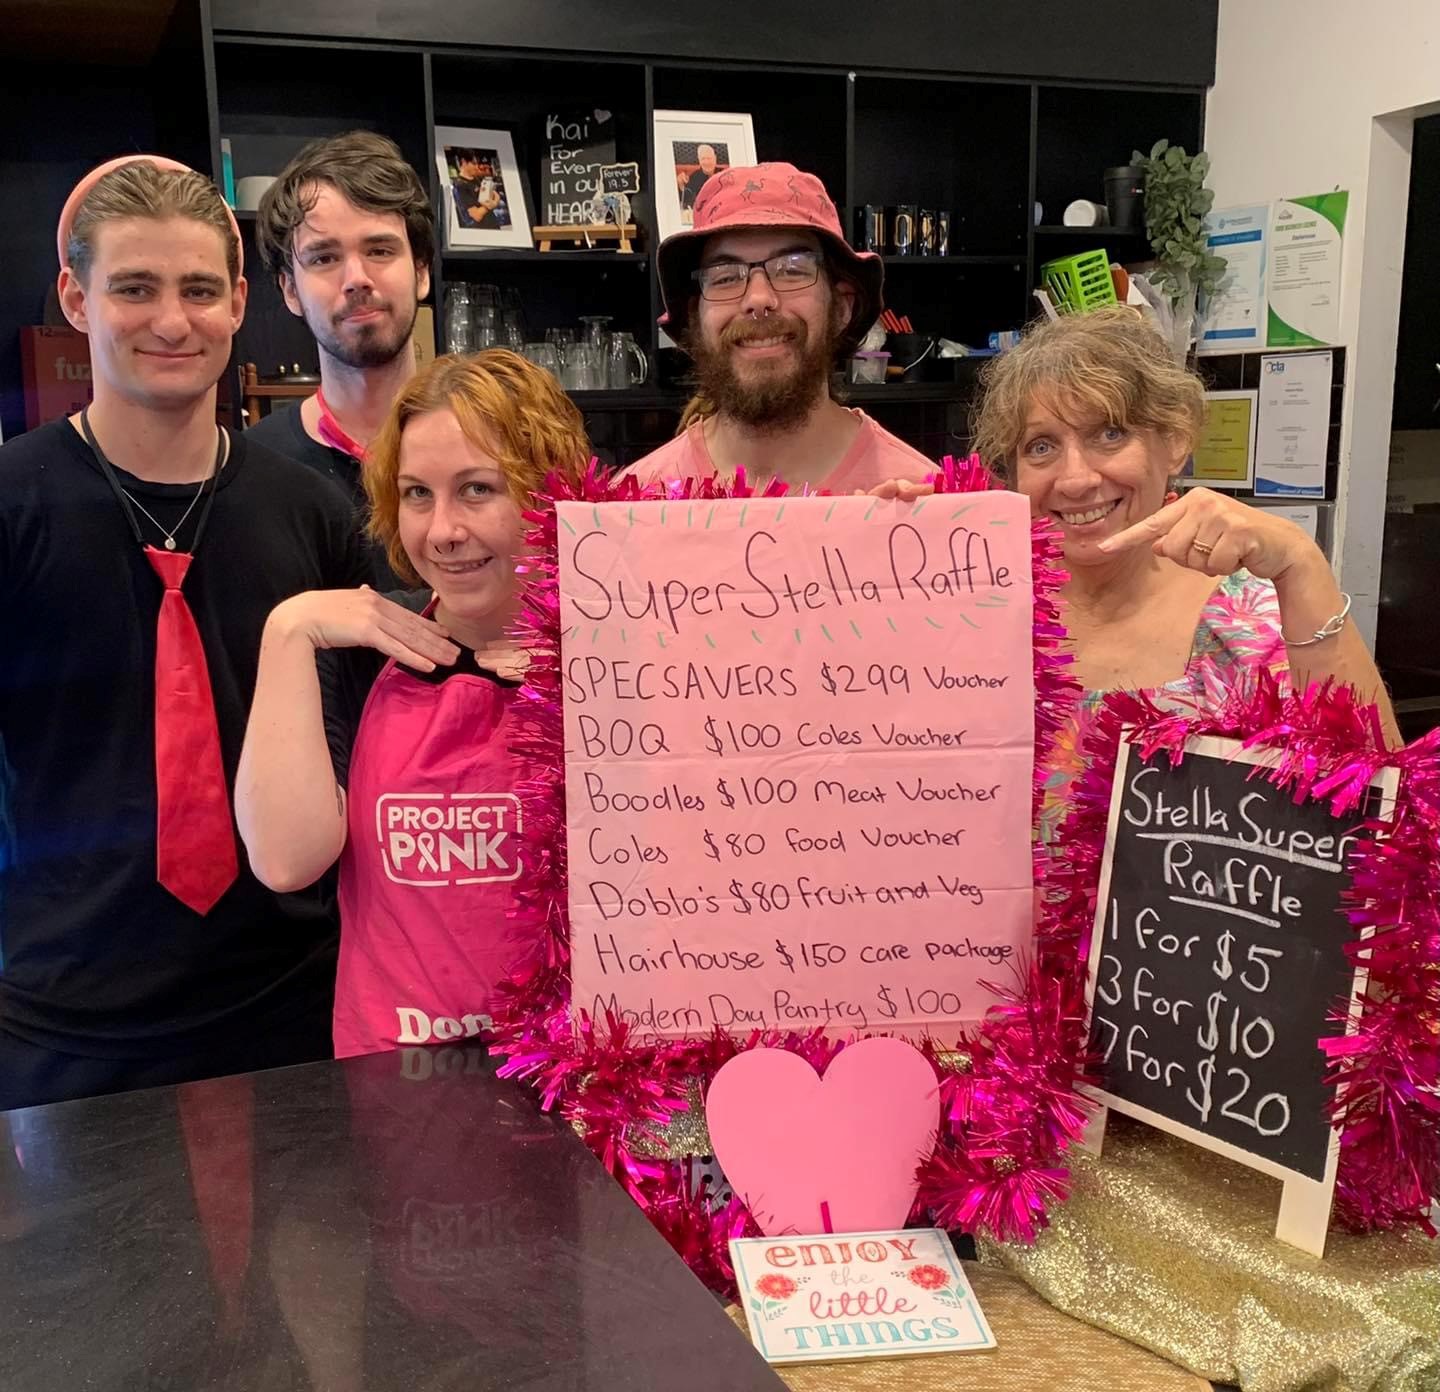 Kai
For
Ever
in our
HEAR
Forever
19.5
12
fuz
cta
Super Stella Raffle
SPECSAVERS $299 Voucher
BOQ $100 Coles Voucher
Boodles $100 Meat Voucher
Coles $80 food Voucher
Doblo's $80 Fruit and Veg
Hairhouse $150 care package
Modern Day Pantry $100
PROJECT
PINK
Don
Stella Super
Raffle
1 for $5
3 for $10
7 for $20
enjoy
the
little
THINGS